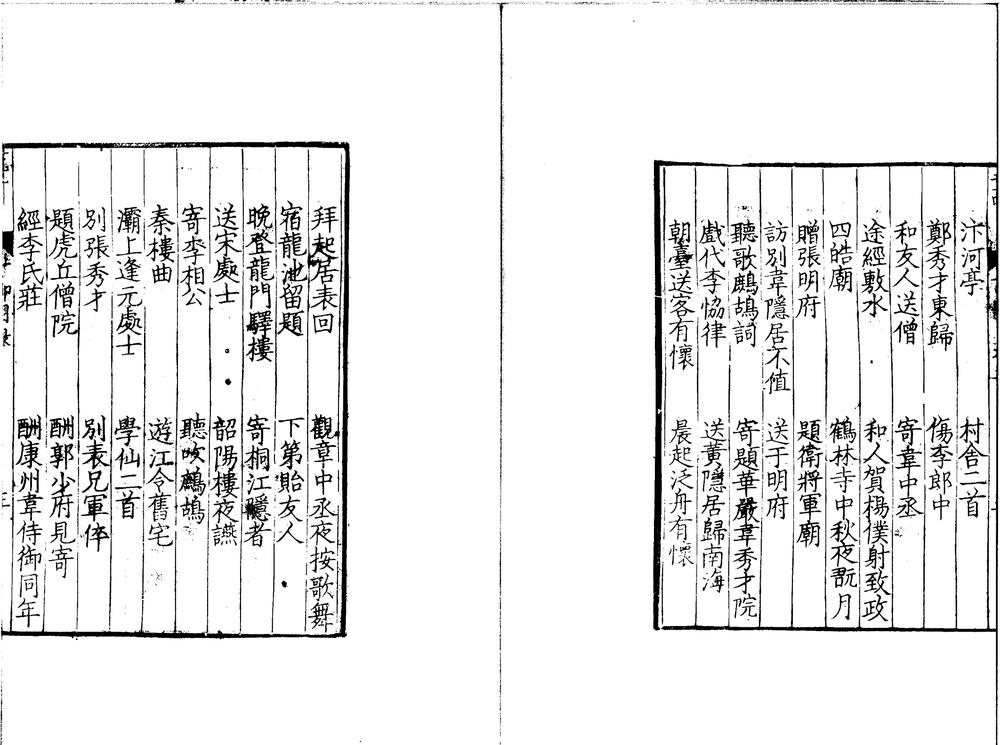 汴河亭 村舍二首
鄭秀才東歸 傷李郎中
和友人送僧 寄韋中丞
途經敷水 和人賀楊僕射致政
四皓廟 鶴林寺中秋夜翫月
贈張明府 題衛將軍廟
訪別韋隱居不值 送于明府
聽歌鷓鴣詞 寄題華嚴韋秀才院
戲代李恊律 送黃隱居歸南海
朝臺送客有懷 晨起泛舟有懷
拜起居表回 觀章中丞夜按歌舞
宿龍池留題 下第貽友人
晚登龍門驛樓 寄桐江隱者
送宋處士 韶陽樓夜讌
寄李相公 聽吹鷓鴣
秦樓曲 遊江令舊宅
灞上逢元處士 學仙二首
別張秀才 別表兄軍倅
題虎丘僧院 酬郭少府見寄
經李氏莊 酬康州韋侍御同年